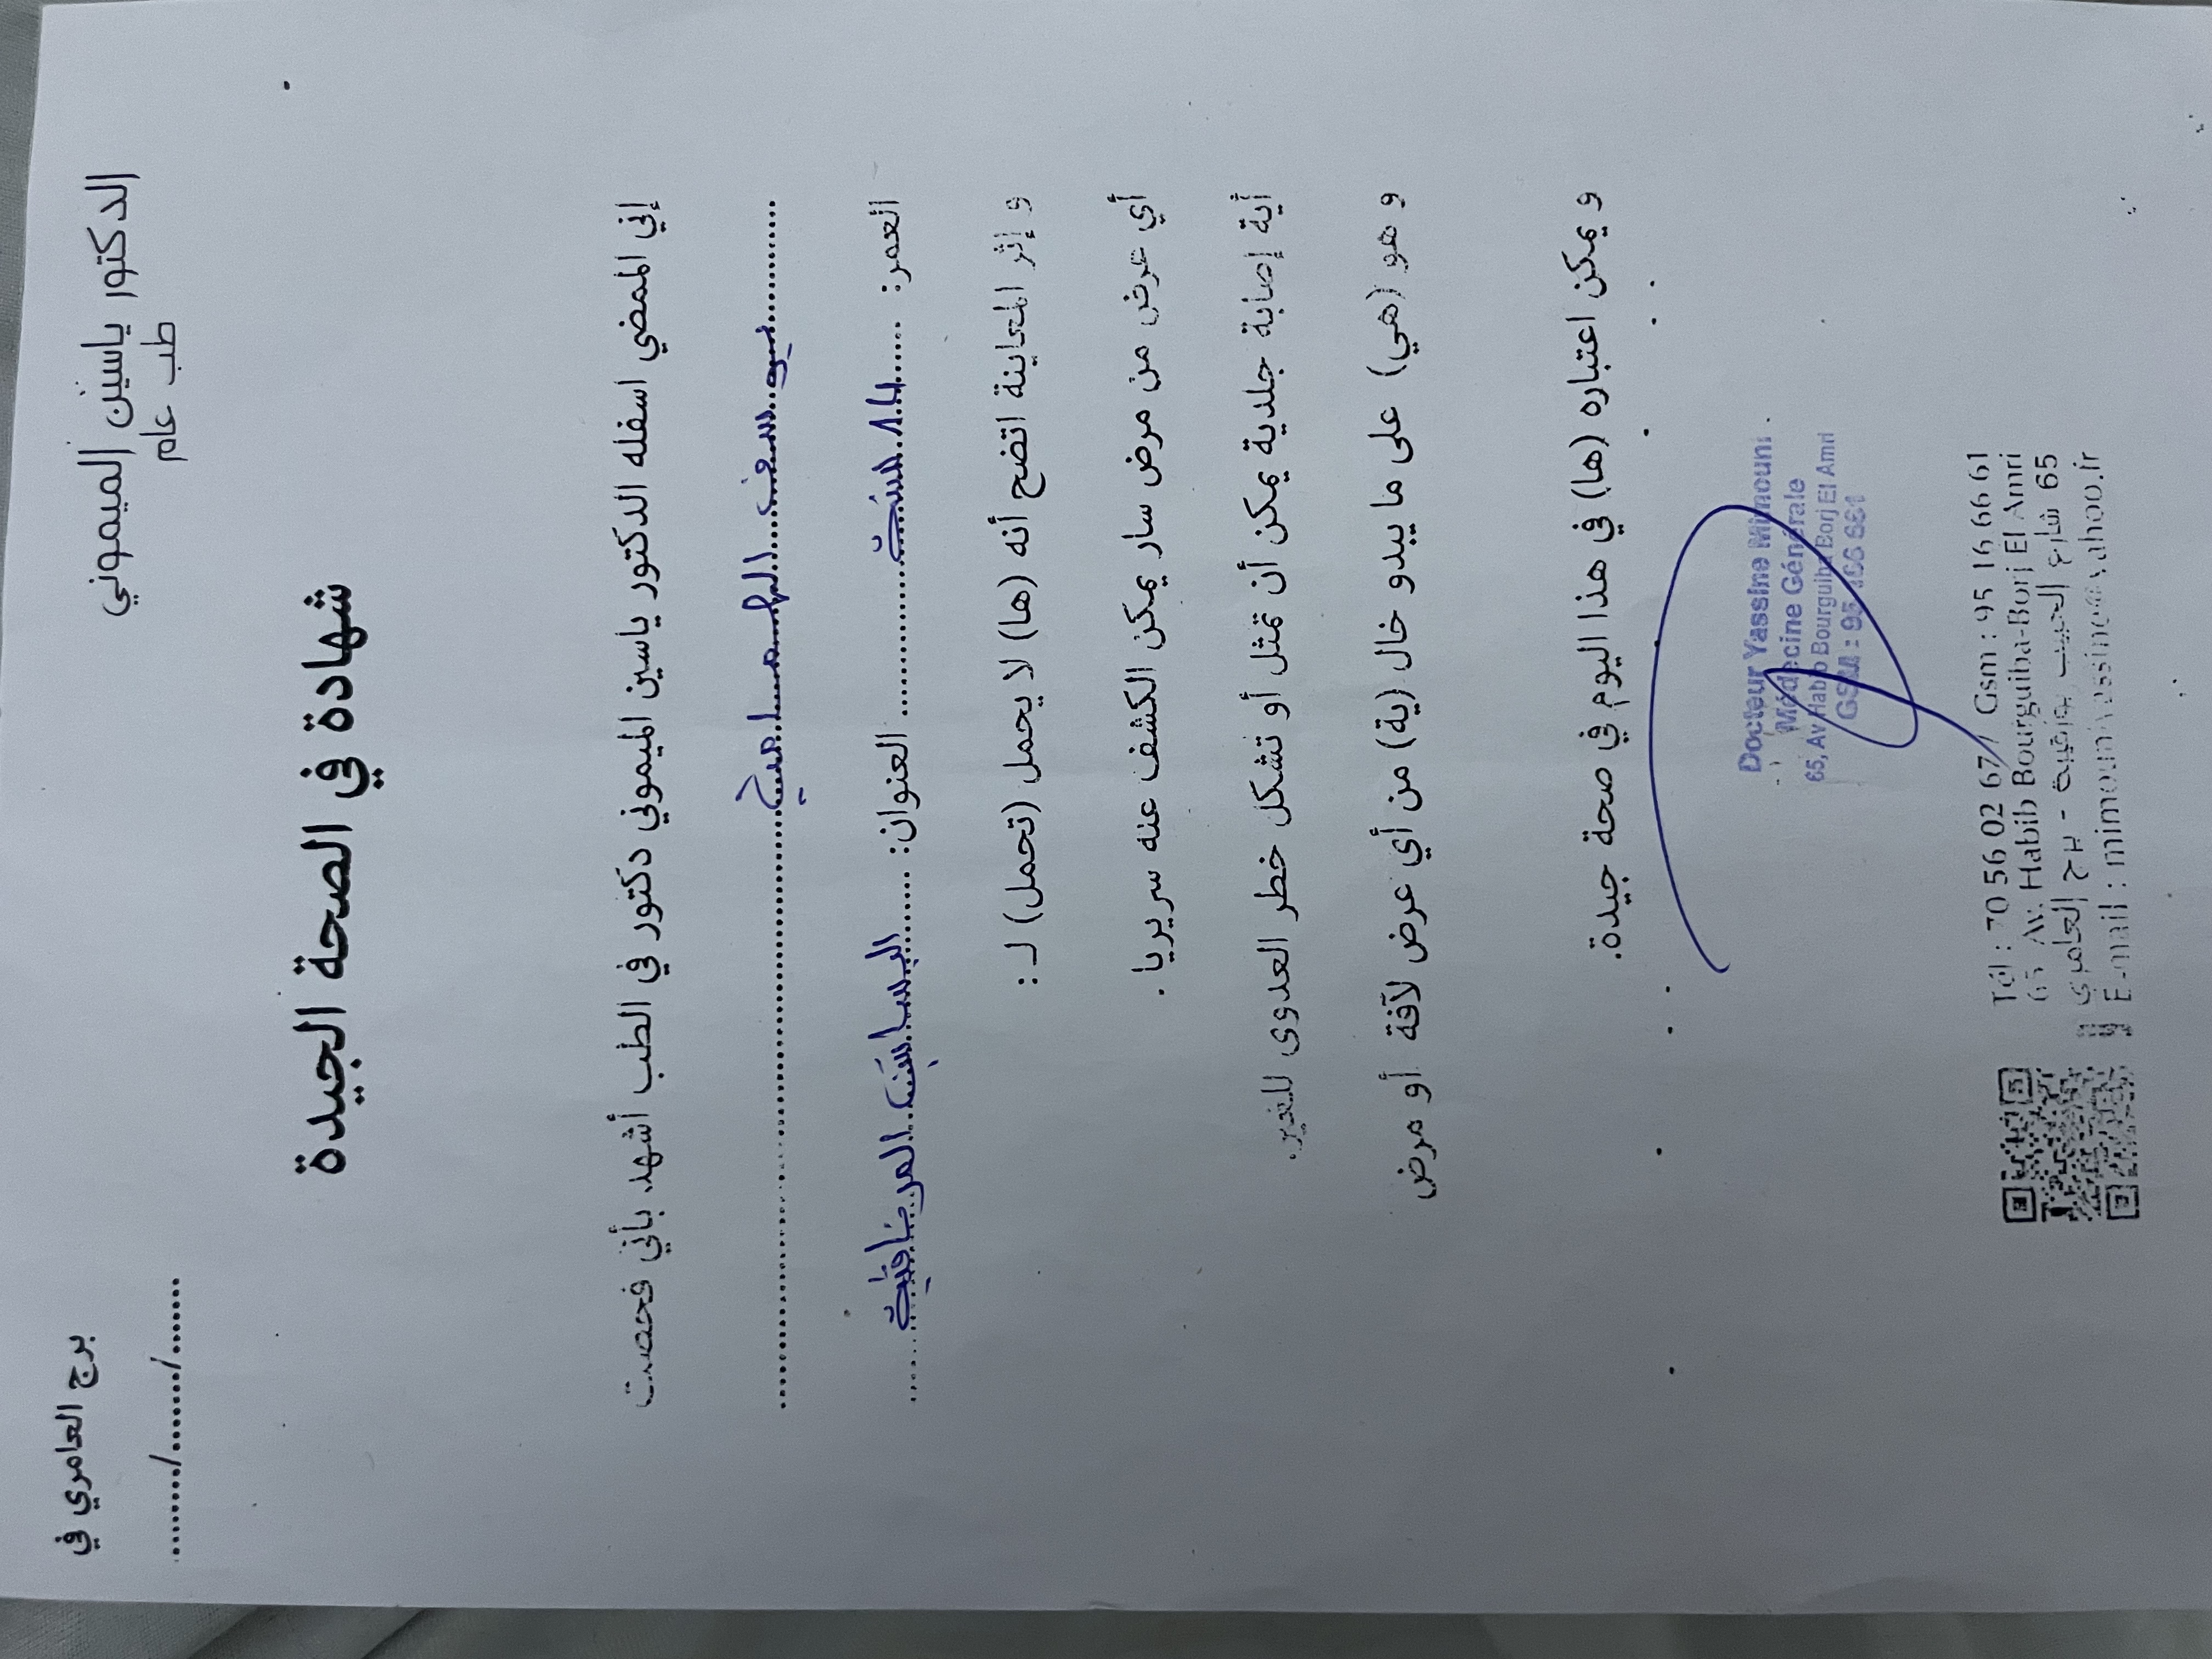 الدكتور ياسين الميموني
طب عام
برج العامري في
........./........./.........
شهادة في الصحة الجيدة
إني الممضي اسفله الدكتور ياسين الميموني دكتور في الطب أشهد بأني فحصت
يوسف
العمر: 14 سنة العنوان: البساتين
و إثر المعاينة اتضح أنه (ها) لا يحمل (تحمل) لـ :
أي عرض من مرض سار يمكن الكشف عنه سريريا .
أية إصابة جلدية يمكن أن تمثل أو تشكل خطر العدوى للغير.
و هو (هي) على ما يبدو خال (ية) من أي عرض لآفة أو مرض
و يمكن اعتباره (ها) في هذا اليوم في صحة جيدة.
Docteur Yassine Mimouni
Médecine Générale
65, Av Habib Bourguiba Borj El Amri
GSM : 95 166 661
Tél : 70 56 02 67 / Gsm : 95 16 66 61
65 Av. Habib Bourguiba-Borj El Amri
65 شارع الحبيب بورقيبة - برج العامري